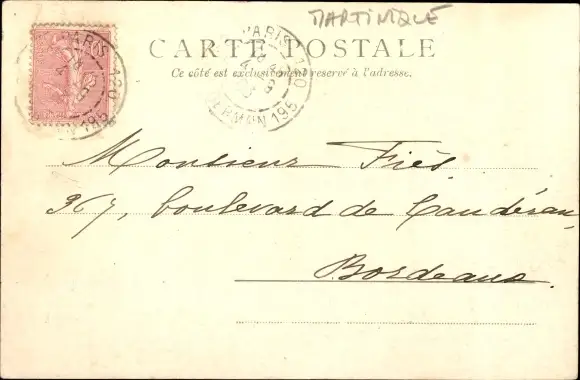 MARTINIQUE
CARTE POSTALE
Ce côté est exclusivement réservé à l'adresse.
PARIS 120
PARIS 120
Monsieur Fiès
367, boulevard de Caudéran,
Bordeaux.